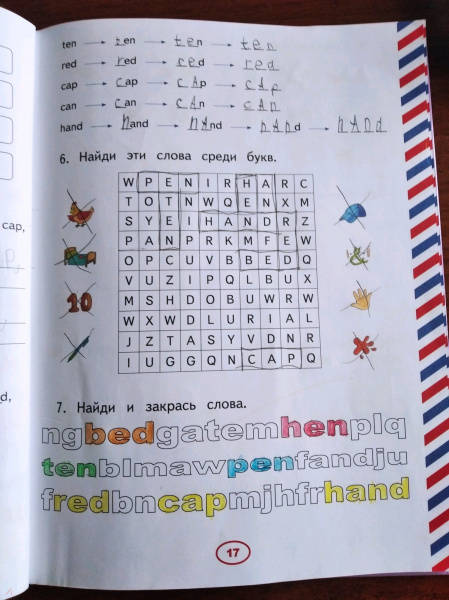 ten → ten → ten → ten
red → red → red → red
cap → cap → cAp → cAp
can → can → cAn → cAn
hand → hand → hAnd → hAnd → hAnd
6. Найди эти слова среди букв.
W P E N I R H A R C
T O T N W Q E N X M
S Y E I H A N D R Z
P A N P R K M F E W
O P C U V B B E D Q
V U Z I P Q L B U X
M S H D O B U W R W
W X W D L U R I A L
J Z T A S Y V D N R
I U G G Q N C A P Q
10
&
cap,
d,
7. Найди и закрась слова.
ngbedgatemhenplq
tenblmawpenfandju
fredbncapmjhfrhand
17